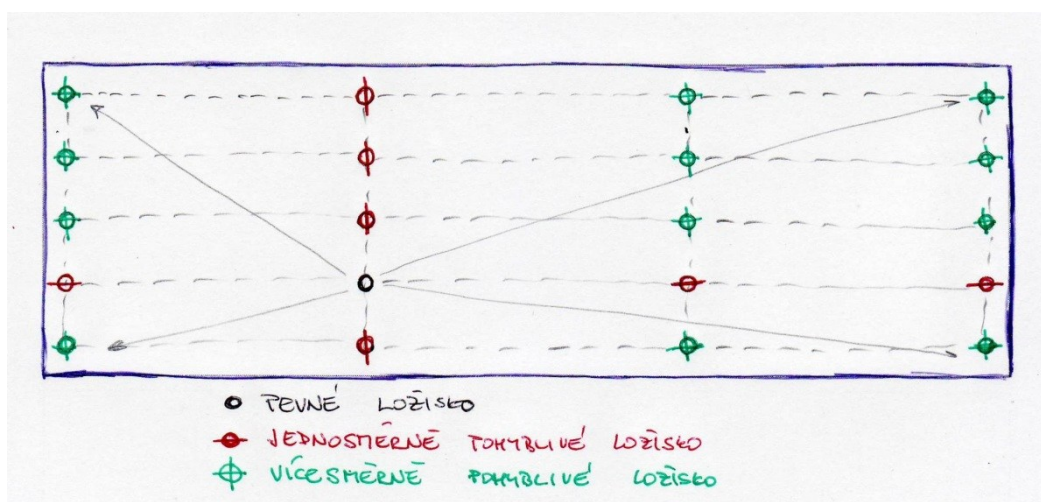 PEVNÉ LOŽISKO
JEDNOSMĚRNĚ POHYBLIVÉ LOŽISKO
VÍCESMĚRNĚ POHYBLIVÉ LOŽISKO